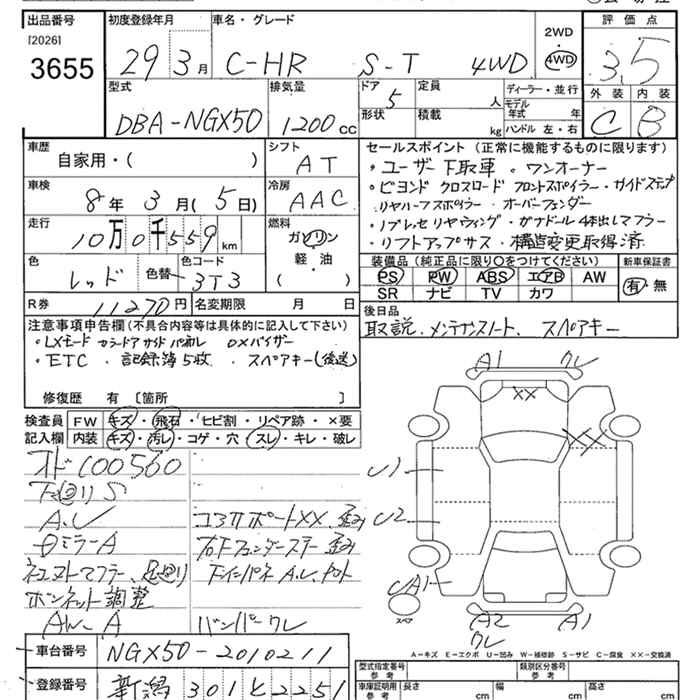 出品番号 初度登録年月 車名・グレード 評価点
[2026] 2WD
3655 29 3月 C-HR S-T 4WD 4WD 3.5
型式 排気量 ドア 5 定員 人 ディーラー・並行 外装 内装
DBA-NGX50 1200cc 形状 積載 kg モデル年式 年 ハンドル 左・右 C B
車歴 自家用・( ) シフト AT セールスポイント(正常に機能するものに限ります)
・ユーザー下取車 ・ワンオーナー
車検 8年3月(5日) 冷房 AAC
・ビヨンド クロスロード フロントスポイラー・サイドステップ
リヤハーフスポイラー・オーバーフェンダー
走行 10万0千559km 燃料 ガソリン・軽油 ( )
・リブレッセ リヤウィング・ガナドール 4本出しマフラー
・リフトアップサス・構造変更取得済
色 レッド 色替 色コード 3T3
装備品(純正品に限り○をつけてください) 新車保証書
PS PW ABS エアB AW 有・無
SR ナビ TV カワ
R券 11270円 名変期限 月 日
後日品
取説.メンテナンスノート、スペアキー
注意事項申告欄(不具合内容等は具体的に記入して下さい)
・LXモード カラードアサイドパネル ・DXバイザー
・ETC ・記録簿5枚 ・スペアキー(後送)
修復歴 有 [箇所 ]
検査員 FW キズ・飛石・ヒビ割・リペア跡・×要
記入欄 内装 キズ・汚レ・コゲ・穴・スレ・キレ・破レ
オド100560
下廻りS
A.U コアサポートXX.歪み
ミラーA 右Fフェンダーステー歪み
マフラー、足廻り
ボンネット調整
AW-A バンパークレ
A1 クレ
XX
XX
U1
U2
UA1
スペア
A2 A1
クレ
A-キズ E-エクボ U-凹み W-補修跡 S-サビ C-腐食 XX-交換済
車台番号 NGX50-2010211
型式指定番号 参考 類別区分番号 参考
登録番号 新潟 301 と 2251
車庫証明用 参考 長さ cm 幅 cm 高さ cm